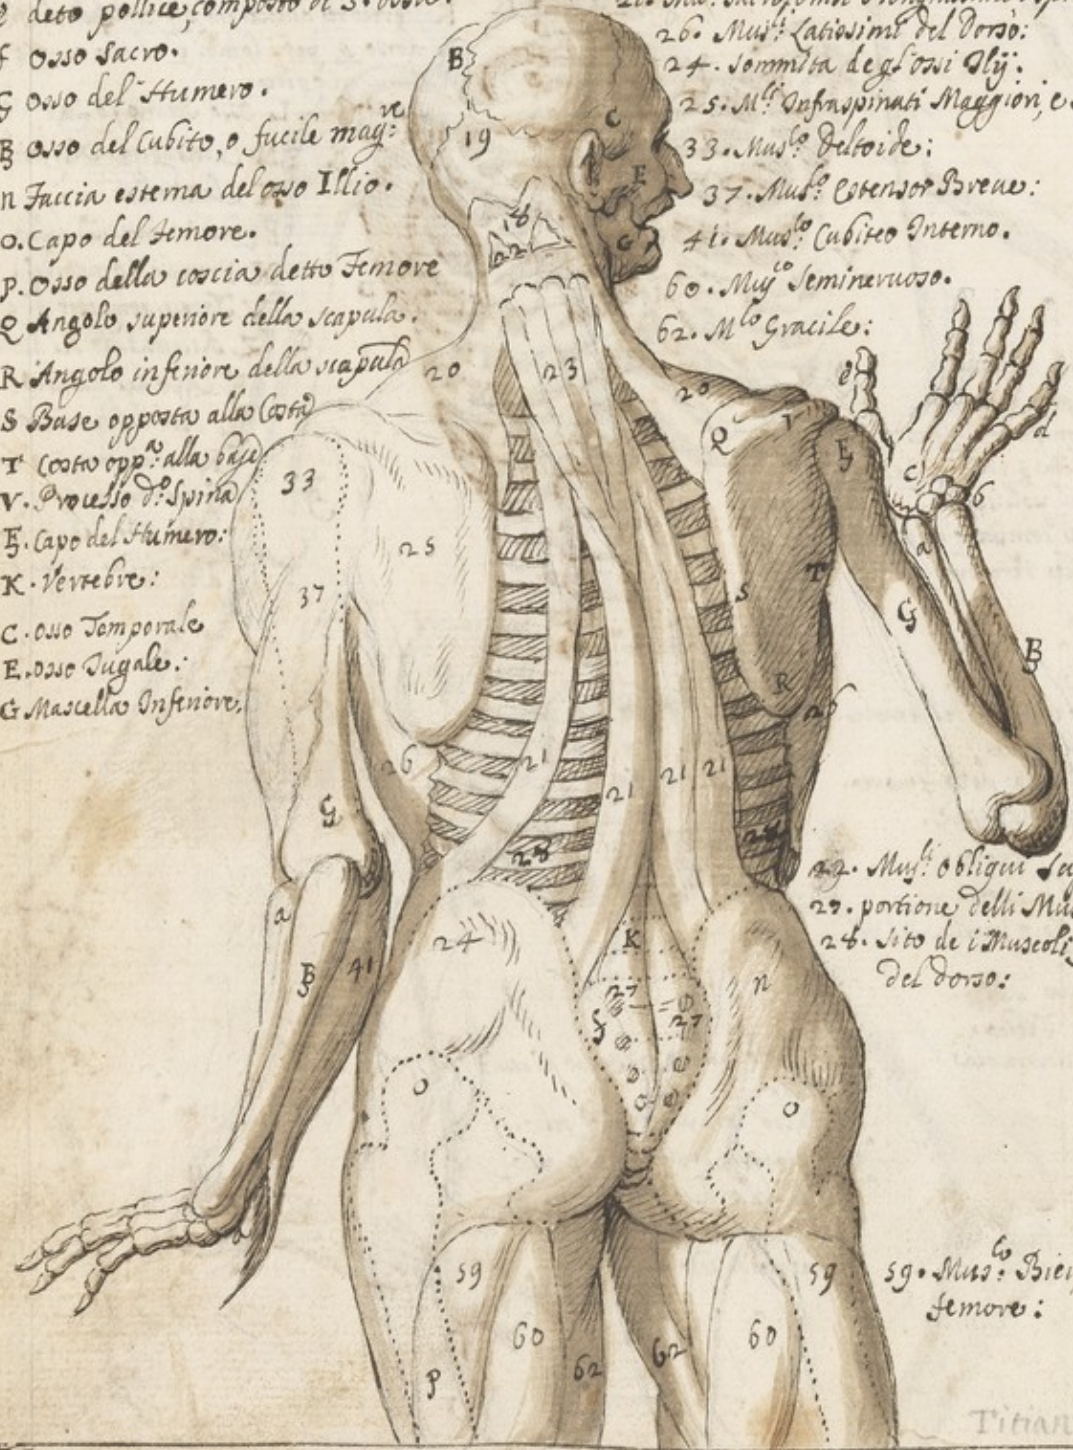 deto pollice, composto di 3. ossa.
f Osso Sacro.
G Osso del Humero.
B Osso del Cubito, o fucile mag:re
n Faccia esterna del osso Illio.
O. Capo del Femore.
P. Osso della coscia detto Femore
Q Angolo superiore della scapula.
R Angolo inferiore della scapula
S Base opposta alla Costa
T Costa opp:a alla base
V. Processo d:o Spina
H. Capo del Humero:
K. Vertebre:
C. osso Temporale
E. osso Iugale:
G Mascella Inferiore.
26. Mus:li Latissimi del Dorso:
24. sommita degl'ossi Ilij.
25. M:li Infraspinati Maggiori, e
33. Mus:lo Deltoide:
37. Mus:lo Estensor Breve:
41. Mus:lo Cubiteo Interno.
60. Mus:lo Seminervoso.
62. M:lo Gracile:
22. Mus:li obliqui
27. portione delli
28. sito de i Muscoli
del dorso:
59. Mus:lo
femore:
B
19
C
E
18
22
G
20
23
20
Q
V
e
d
C
b
a
33
25
37
S
T
G
B
R
26
26
21
21
21
21
28
G
a
B
41
24
K
n
27
27
f
O
O
59
59
60
60
62
62
P
Titian